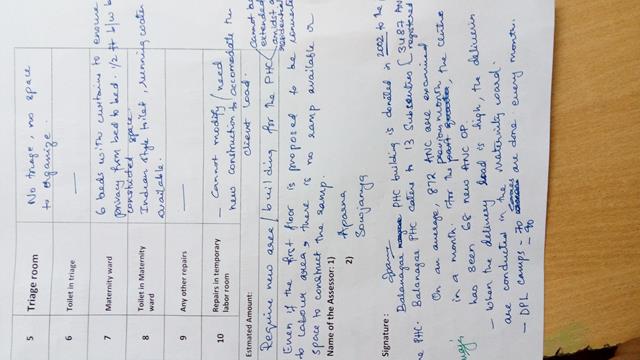 5 Triage room No triage, no space
to organize.
6 Toilet in triage —
7 Maternity ward 6 beds with curtains to ensure
privacy from bed to bed. 1/2 ft b/w b
constricted space
8 Toilet in Maternity
ward Indian style toilet, running water
available.
9 Any other repairs —
10 Repairs in temporary
labor room - Cannot modify / need
new construction to accomodate the
client load.
Estmated Amount:
Require new area / building for the PHC (cannot be
extended
amidst a
residential
Even if the first floor is proposed to be converted
to labour area, there is no ramp available or
space to construct the ramp.
Name of the Assessor: 1) Aparna
2) Sowjanya
Signature :
Balanagar PHC building is donated in 2002 to the
PHC. Balanagar PHC caters to 13 Subcenters (3487 AN
registered
On an average, 872 ANC are examined
in a month. For the previous month, the centre
has seen 68 new ANC OP.
- When the delivery load is high, the deliveries
are conducted in the Maternity ward.
- DPL camps - 70 are done every month.
- 90